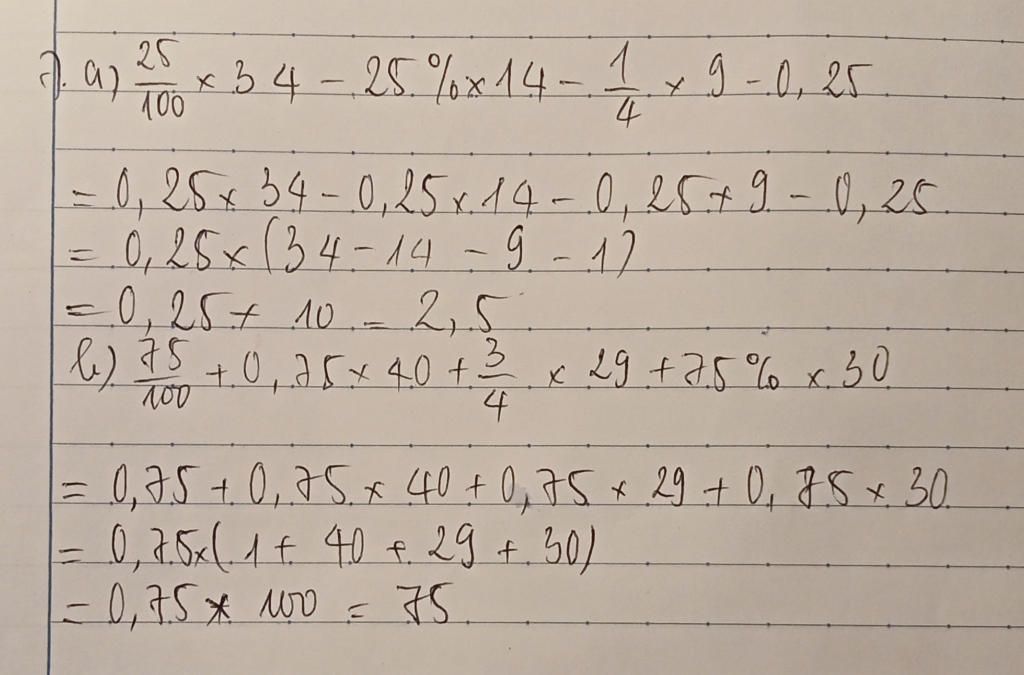 a) 25/100 × 34 - 25% × 14 - 1/4 × 9 - 0,25
= 0,25 × 34 - 0,25 × 14 - 0,25 × 9 - 0,25
= 0,25 × (34 - 14 - 9 - 1)
= 0,25 × 10 = 2,5
b) 75/100 + 0,75 × 40 + 3/4 × 29 + 75% × 30
= 0,75 + 0,75 × 40 + 0,75 × 29 + 0,75 × 30
= 0,75 × (1 + 40 + 29 + 30)
= 0,75 × 100 = 75